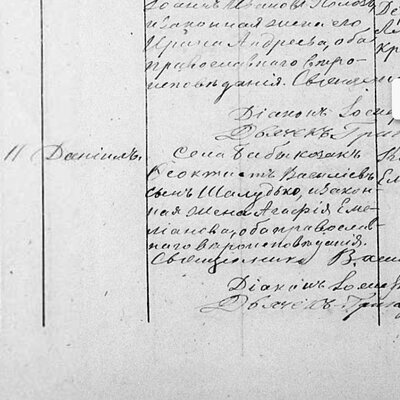 Иоанъ Ивановъ
и законная жена его
Ирина Андреева, оба
православнаго вѣро-
исповѣданія. Священ
Діаконъ Іосиф
Дьячекъ Григ
11 Даніилъ.
Села Бабы козакъ
Ѳеоктистъ Василіевъ
сынъ Шалудько, и закон-
ная жена Агафія Еме-
ліанова, оба православ-
наго вѣроисповѣданія.
Священникъ Васи
Діаконъ Іосиф
Дьячекъ Григо